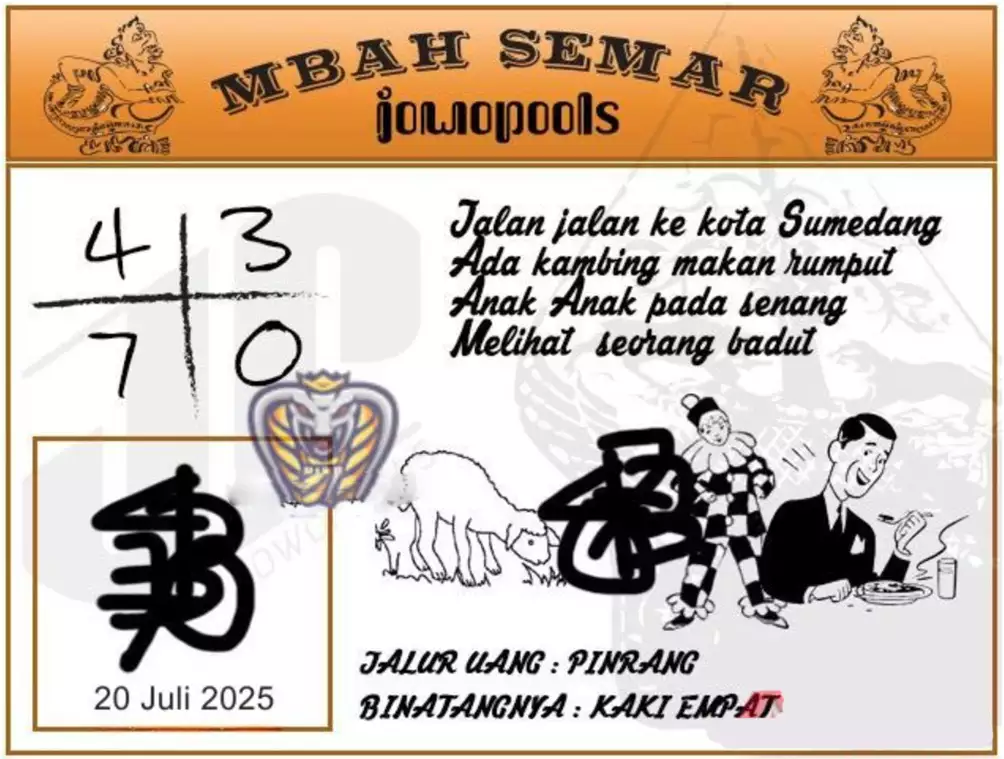 MBAH SEMAR
jowopools
4 3
7 0
Jalan jalan ke kota Sumedang
Ada kambing makan rumput
Anak Anak pada senang
Melihat seorang badut
20 Juli 2025
JALUR UANG : PINRANG
BINATANGNYA : KAKI EMPAT